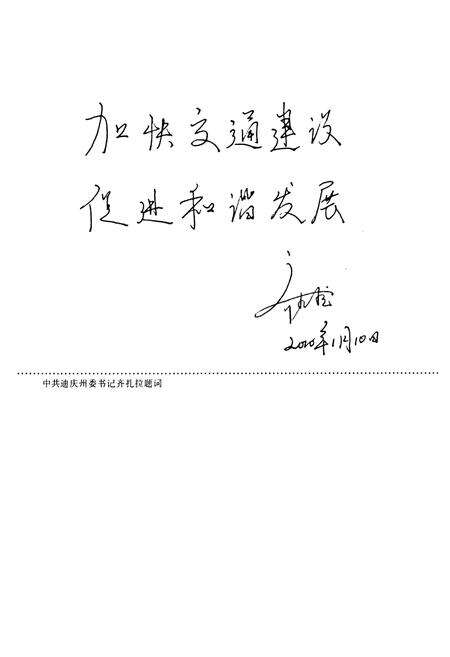 加快交通建设
促进和谐发展
2010年1月10日
中共迪庆州委书记齐扎拉题词